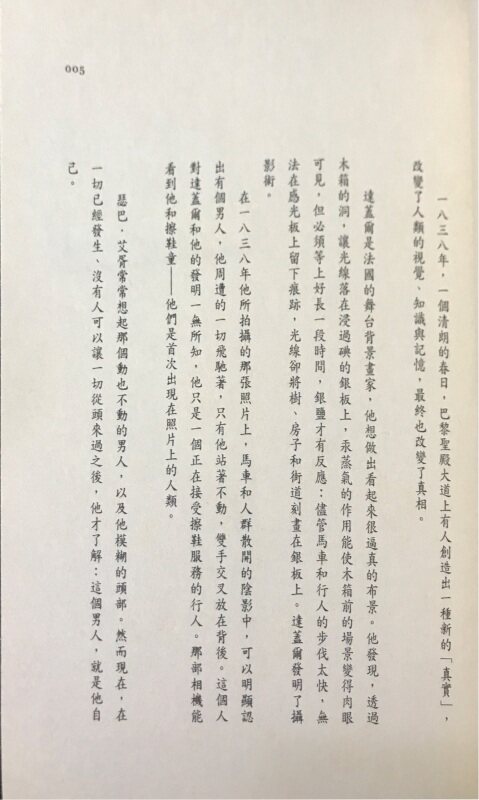 005
一八三八年，一個清朗的春日，巴黎聖殿大道上有人創造出一種新的「真實」，
改變了人類的視覺、知識與記憶，最終也改變了真相。
達蓋爾是法國的舞台背景畫家，他想做出看起來很逼真的布景。他發現，透過
木箱的洞，讓光線落在浸過碘的銀板上，汞蒸氣的作用能使木箱前的場景變得肉眼
可見，但必須等上好長一段時間，銀鹽才有反應：儘管馬車和行人的步伐太快，無
法在感光板上留下痕跡，光線卻將樹、房子和街道刻畫在銀板上。達蓋爾發明了攝
影術。
在一八三八年他所拍攝的那張照片上，馬車和人群散開的陰影中，可以明顯認
出有個男人，他周遭的一切飛馳著，只有他站著不動，雙手交叉放在背後。這個人
對達蓋爾和他的發明一無所知，他只是一個正在接受擦鞋服務的行人。那部相機能
看到他和擦鞋童——他們是首次出現在照片上的人類。
瑟巴．艾胥常常想起那個動也不動的男人，以及他模糊的頭部。然而現在，在
一切已經發生、沒有人可以讓一切從頭來過之後，他才了解：這個男人，就是他自
己。